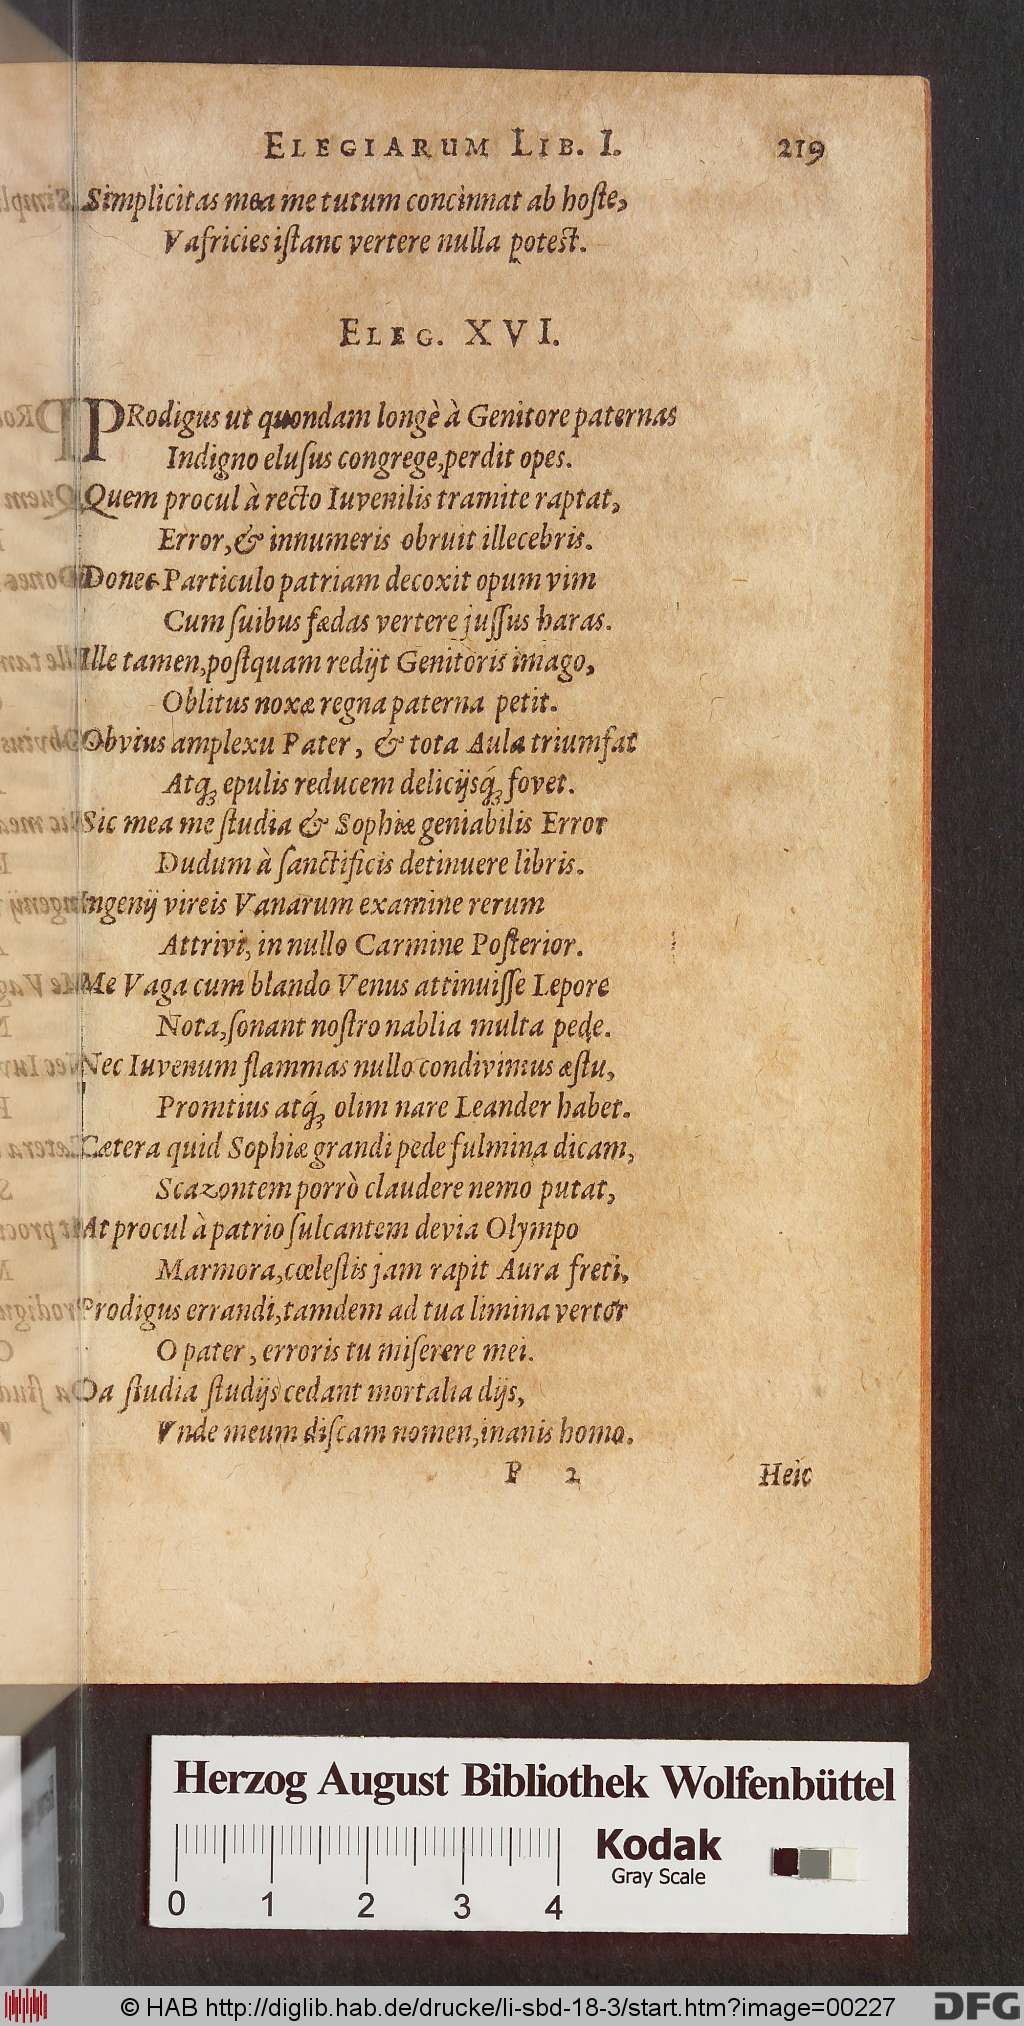 ELEGIARUM LIB. I. 219
Simplicitas mea me tutum concinnat ab hoſte,
Vafricies iſtanc vertere nulla poteſt.
ELEG. XVI.
PRodigus ut quondam longè à Genitore paternas
Indigno eluſus congrege, perdit opes.
Quem procul à recto Iuvenilis tramite raptat,
Error, & innumeris obruit illecebris.
Donec Particulo patriam decoxit opum vim
Cum ſuibus fædas vertere juſſus haras.
Ille tamen, poſtquam redijt Genitoris imago,
Oblitus noxæ regna paterna petit.
Obvius amplexu Pater, & tota Aula triumfat
Atq́; epulis reducem delicijsq́; fovet.
Sic mea me ſtudia & Sophiæ geniabilis Error
Dudum à ſanctificis detinuere libris.
Ingenij vireis Vanarum examine rerum
Attrivi, in nullo Carmine Poſterior.
Me Vaga cum blando Venus attinuiſſe Lepore
Nota, ſonant noſtro nablia multa pede.
Nec Iuvenum flammas nullo condivimus æſtu,
Promtius atq́; olim nare Leander habet.
Cætera quid Sophiæ grandi pede fulmina dicam,
Scazontem porrò claudere nemo putat,
At procul à patrio ſulcantem devia Olympo
Marmora, cœleſtis jam rapit Aura freti,
Prodigus errandi, tamdem ad tua limina vertor
O pater, erroris tu miſerere mei.
Da ſtudia ſtudijs cedant mortalia dijs,
Vnde meum diſcam nomen, inanis homo.
P 2 Heic
Herzog August Bibliothek Wolfenbüttel
Kodak
Gray Scale
0 1 2 3 4
© HAB http://diglib.hab.de/drucke/li-sbd-18-3/start.htm?image=00227
DFG